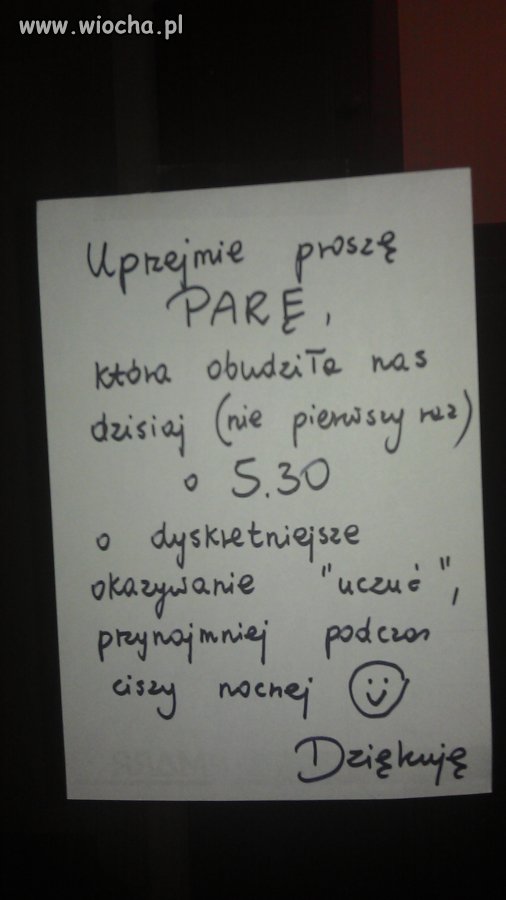 www.wiocha.pl
Uprzejmie proszę
PARĘ,
która obudziła nas
dzisiaj (nie pierwszy raz)
o 5.30
o dyskretniejsze
okazywanie "uczuć",
przynajmniej podczas
ciszy nocnej
Dziękuję